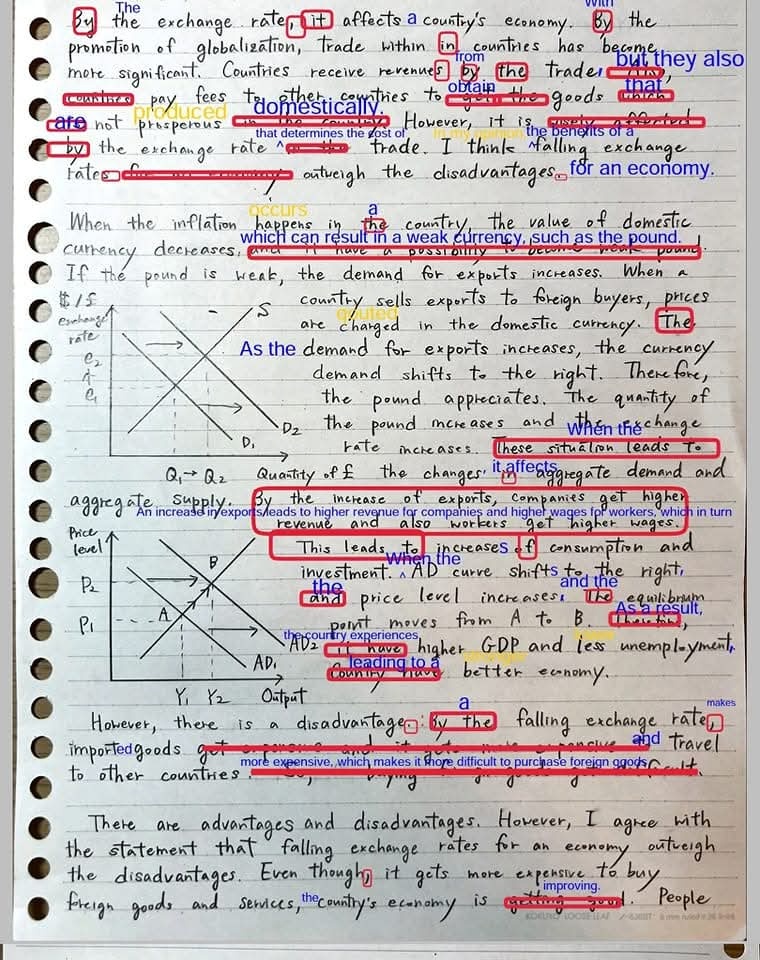 The With
By the exchange rate, it affects a country's economy. By the
promotion of globalization, trade within in countries has become
from but they also
more significant. Countries receive revenues by the trade,
obtain that
countries pay fees to other countries to get the goods which
produced domestically.
are not prosperous in the country. However, it is affected
that determines the cost of In my opinion the benefits of a
by the exchange rate ^ trade. I think ^falling exchange
rates for an economy outweigh the disadvantages. for an economy.
occurs a
When the inflation happens in the country, the value of domestic
which can result in a weak currency, such as the pound.
currency decreases, and it have a possibility to become weak pound.
If the pound is weak, the demand for exports increases. When a
country sells exports to foreign buyers, prices
quoted
are charged in the domestic currency. The
As the demand for exports increases, the currency
demand shifts to the right. Therefore,
the pound appreciates. The quantity of
the pound increases and the exchange
When the
rate increases. These situation leads to
it affects
the changes, in aggregate demand and
$/£
exchange
rate
e2
e1
S
D2
D1
Q1→Q2 Quantity of £
aggregate supply. By the increase of exports, companies get higher
An increase in exports leads to higher revenue for companies and higher wages for workers, which in turn
revenue and also workers get higher wages.
This leads to increases of consumption and
When the
investment. ^ AD curve shifts to the right,
the and the
and price level increases. The equilibrium
As a result,
point moves from A to B. Therefore,
the country experiences
it have higher GDP and less unemployment,
leading to a
Country have better economy.
Price
level
P2
P1
A
B
AD2
AD1
Y1 Y2 Output
a makes
However, there is a disadvantage.: By the falling exchange rate,
imported goods get expensive and it gets more expensive and travel
more expensive, which makes it more difficult to purchase foreign goods
to other countries. So, buying foreign goods get difficult.
There are advantages and disadvantages. However, I agree with
the statement that falling exchange rates for an economy outweigh
the disadvantages. Even though, it gets more expensive to buy
improving.
foreign goods and services, the country's economy is getting good. People
KOKUYO LOOSE-LEAF